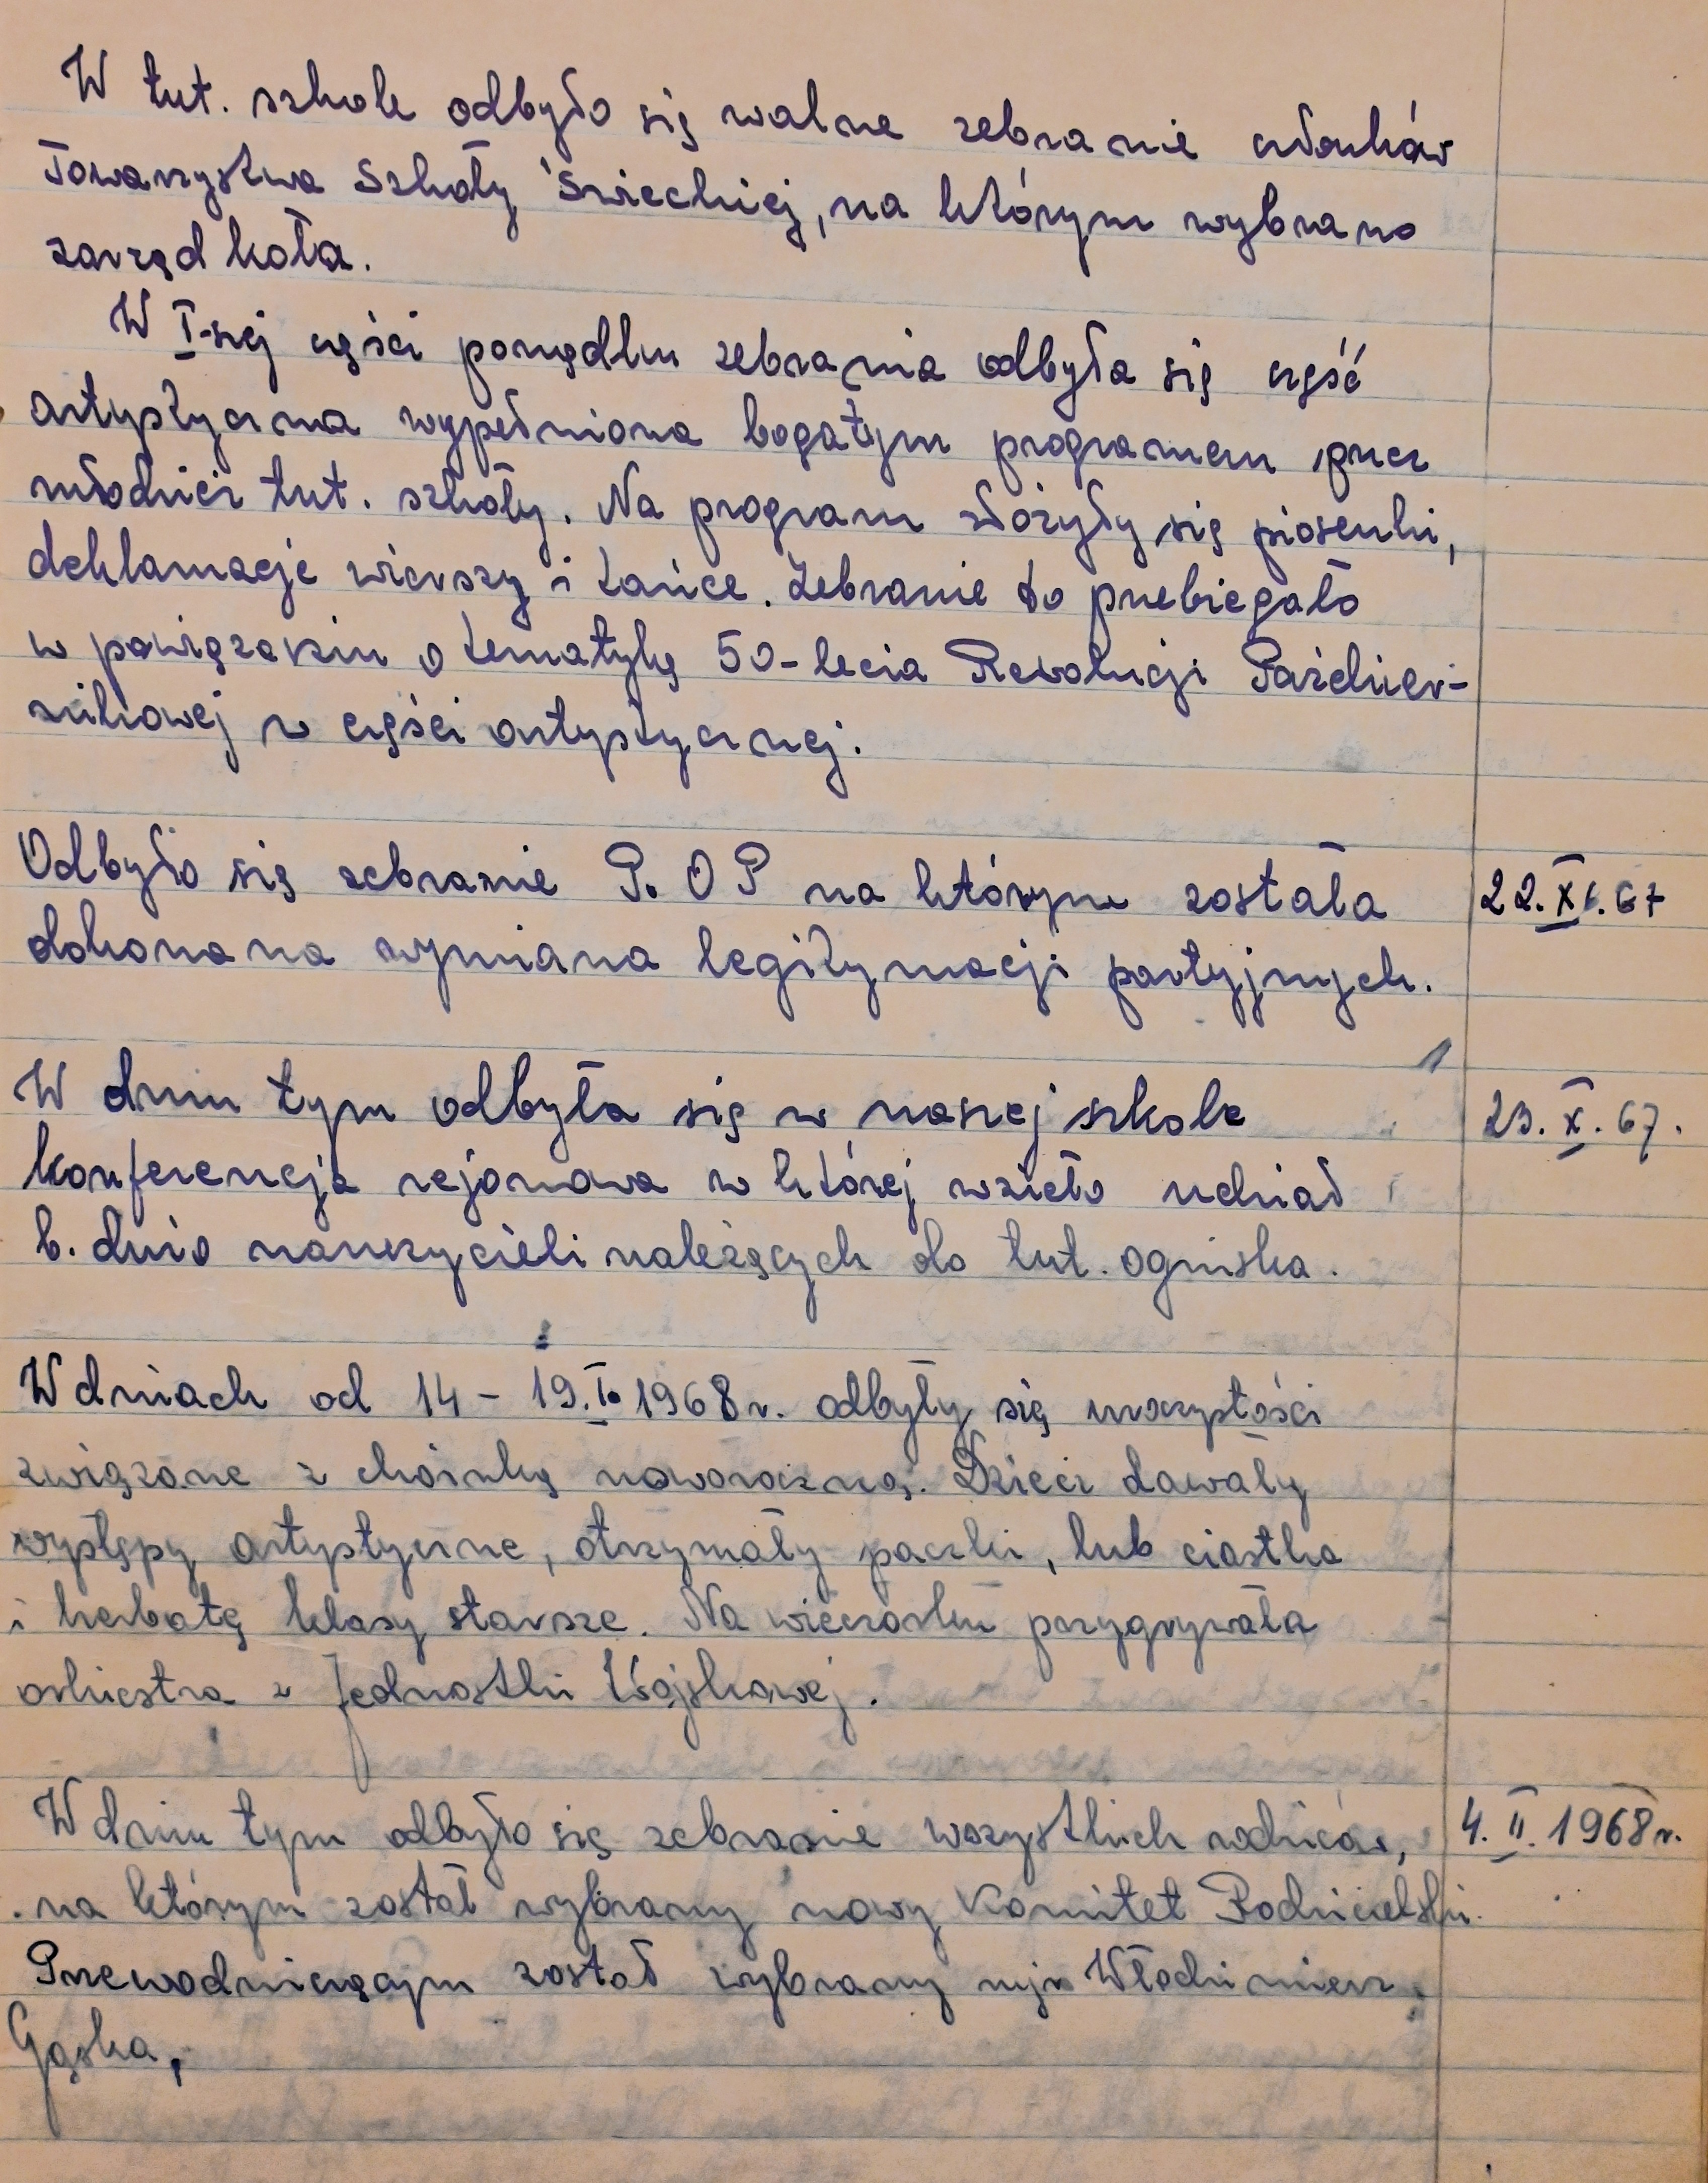 W tut. szkole odbyło się walne zebranie członków
Towarzystwa Szkoły Świeckiej, na którym wybrano
zarząd koła.
W I-szej części porządku zebrania odbyła się część
artystyczna wypełniona bogatym programem przez
młodzież tut. szkoły. Na program złożyły się piosenki,
deklamacje wierszy i tańce. Zebranie to przebiegało
w powiązaniu o tematykę 50-lecia Rewolucji Paździer-
nikowej w części artystycznej.
Odbyło się zebranie P. O P na którym została 22. XI. 67
dokonana wymiana legitymacji partyjnych.
W dniu tym odbyła się w naszej szkole 23. X. 67.
konferencja rejonowa w której wzięło udział
b. dużo nauczycieli należących do tut. ogniska.
W dniach od 14 - 19. I. 1968 r. odbyły się uroczystości
związane z choinką noworoczną. Dzieci dawały
występy artystyczne, otrzymały paczki, lub ciastka
i herbatę klasy starsze. Na wieczorku przygrywała
orkiestra z Jednostki Wojskowej.
W dniu tym odbyło się zebranie wszystkich rodziców, 4. II. 1968 r.
na którym został wybrany nowy Komitet Rodzicielski.
Przewodniczącym został wybrany mjr Włodzimierz
Gąska,